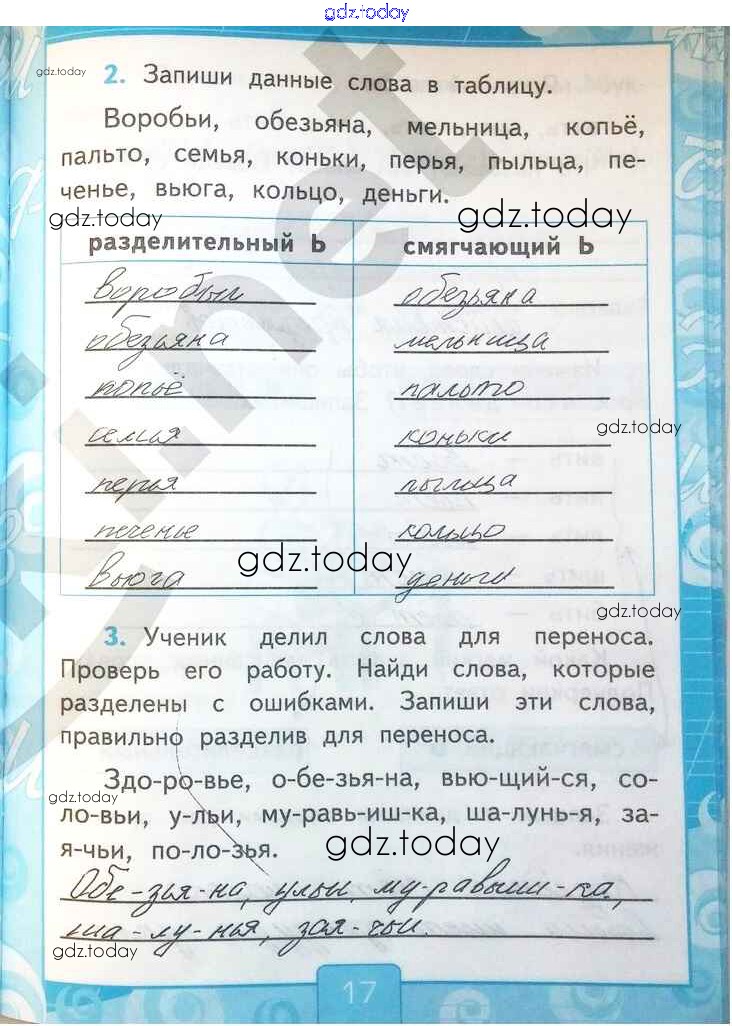 gdz.today
gdz.today
2. Запиши данные слова в таблицу.
Воробьи, обезьяна, мельница, копьё,
пальто, семья, коньки, перья, пыльца, пе-
ченье, вьюга, кольцо, деньги.
gdz.today
gdz.today
разделительный Ь
смягчающий Ь
воробьи
обезьяна
обезьяна
мельница
копьё
пальто
семья
коньки
gdz.today
перья
пыльца
печенье
кольцо
gdz.today
вьюга
деньги
gdz.today
3. Ученик делил слова для переноса.
Проверь его работу. Найди слова, которые
разделены с ошибками. Запиши эти слова,
правильно разделив для переноса.
Здо-ро-вье, о-бе-зья-на, вью-щий-ся, со-
gdz.today
ло-вьи, у-льи, му-равь-иш-ка, ша-лунь-я, за-
я-чьи, по-ло-зья.
gdz.today
Обе-зья-на, ульи, му-равьиш-ка,
ша-лу-нья, зая-чьи.
gdz.today
17